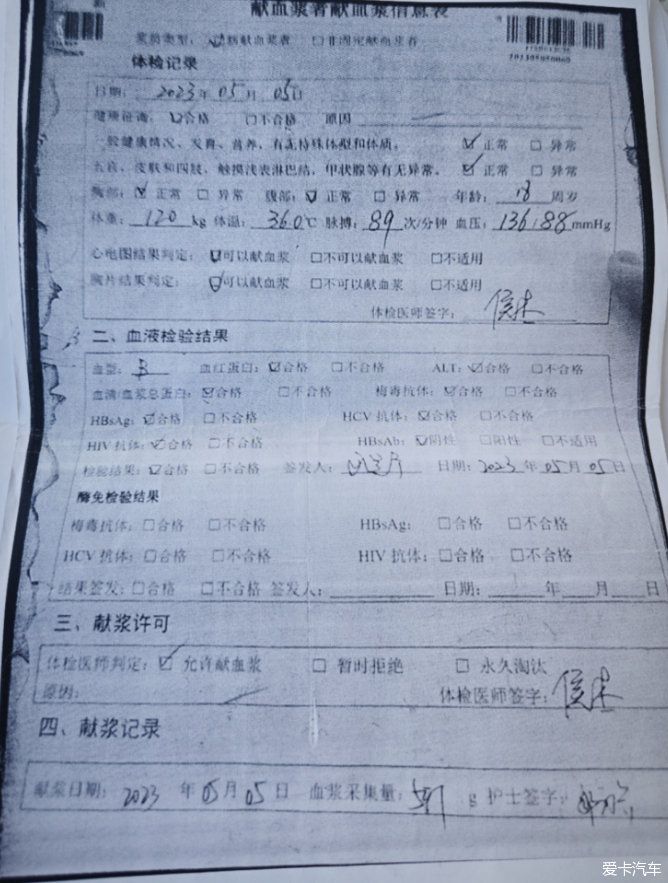 献血浆者献血浆信息表
浆员类型: 固定献血浆者 □非固定献血浆者
体检记录
日期: 2023年05月05日
健康征询: ☑合格 □不合格 原因
一般健康情况、发育、营养,有无特殊体型和体质。 ☑正常 □异常
五官、皮肤和四肢,触摸浅表淋巴结,甲状腺等有无异常。 ☑正常 □异常
胸部: ☑正常 □异常 腹部: ☑正常 □异常 年龄: 18 周岁
体重: 120 kg 体温: 36.0℃ 脉搏: 89 次/分钟 血压: 136/88 mmHg
心电图结果判定: ☑可以献血浆 □不可以献血浆 □不适用
胸片结果判定: ☑可以献血浆 □不可以献血浆 □不适用
体检医师签字:
二、血液检验结果
血型: B 血红蛋白: ☑合格 □不合格 ALT: ☑合格 □不合格
血清/血浆总蛋白: ☑合格 □不合格 梅毒抗体: ☑合格 □不合格
HBsAg: ☑合格 □不合格 HCV抗体: ☑合格 □不合格
HIV抗体: ☑合格 □不合格 HBsAb: ☑阴性 □阳性 □不适用
检验结果: ☑合格 □不合格 签发人: 日期: 2023年05月05日
酶免检验结果
梅毒抗体: □合格 □不合格 HBsAg: □合格 □不合格
HCV抗体: □合格 □不合格 HIV抗体: □合格 □不合格
结果签发: □合格 □不合格 签发人: 日期: 年 月 日
三、献浆许可
体检医师判定: ☑允许献血浆 □暂时拒绝 □永久淘汰
原因: 体检医师签字:
四、献浆记录
献浆日期: 2023年05月05日 血浆采集量: g 护士签字:
爱卡汽车